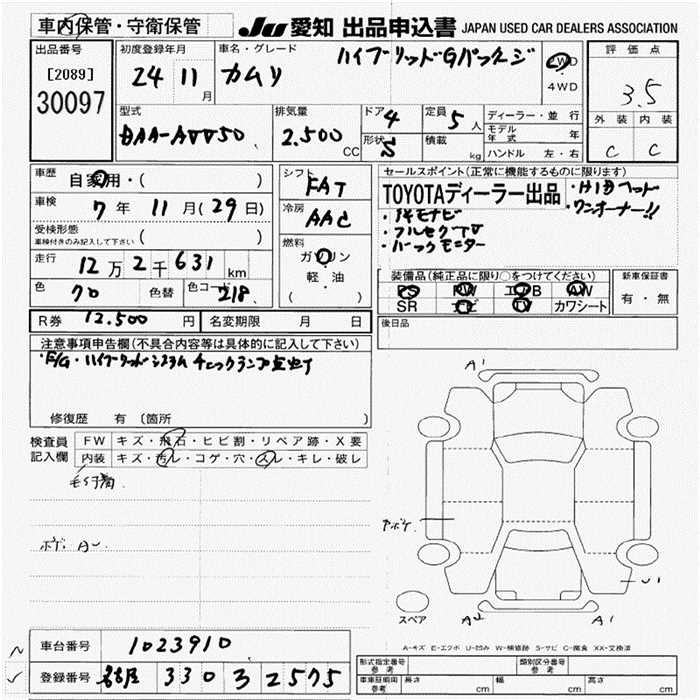 車内保管・守衛保管 JU 愛知 出品申込書 JAPAN USED CAR DEALERS ASSOCIATION
出品番号 初度登録年月 車名・グレード ハイブリッドGパッケージ 評価点
[2089] 24 11月 カムリ 2WD 3.5
30097 4WD
型式 排気量 ドア 4 定員 5人 ディーラー・並行 外装 内装
DAA-AVV50 2.500 CC 形状 S 積載 kg モデル年式 年 C C
ハンドル 左・右
車歴 自家用・( ) シフト FAT セールスポイント(正常に機能するものに限ります)
車検 7年 11月(29日) 冷房 AAC TOYOTAディーラー出品 ・HIDヘッド
受検形態 ・ワンオーナー!!
車検付きのみ記入して下さい ( ) 燃料 ・メモナビ
走行 12万2千631km ガソリン ・フルセグTV
軽・油 ・バックモニター
色 70 色替 色コード 218 ( )
装備品(純正品に限り○をつけてください) 新車保証書
PS PW エアB AW 有・無
SR ナビ TV カワシート
R券 12.500円 名変期限 月 日 後日品
注意事項申告欄(不具合内容等は具体的に記入して下さい)
・E/G・ハイブリッドシステム チェックランプ点灯
修復歴 有 〔箇所 〕
検査員記入欄 FW キズ・飛石・ヒビ割・リペア跡・X要
内装 キズ・汚レ・コゲ・穴・スレ・キレ・破レ
A1
ボデーAU
スペア
A-キズ E-エクボ U-凹み W-補修跡 S-サビ C-腐食 XX-交換済
車台番号 1023910
登録番号 名古屋 330 ス 2575
形式指定番号 参考 類別区分番号 参考
車庫証明用 参考 長さ cm 幅 cm 高さ cm